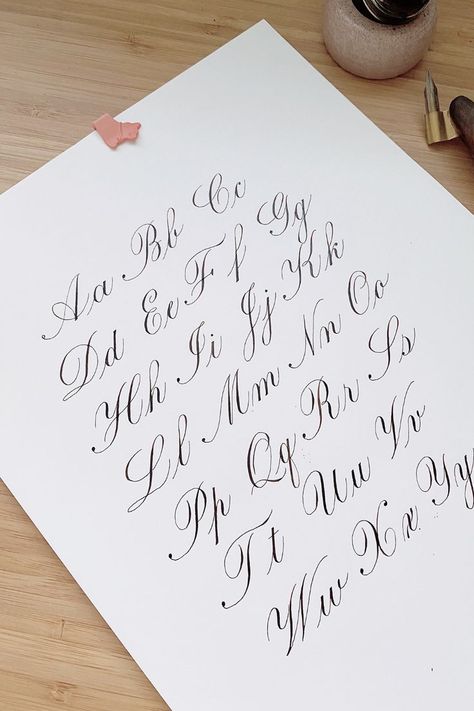 Aa Bb Cc
Dd Ee Ff Gg
Hh Ii Jj Kk
Ll Mm Nn Oo
Pp Qq Rr Ss
Tt Uu Vv
Ww Xx Yy